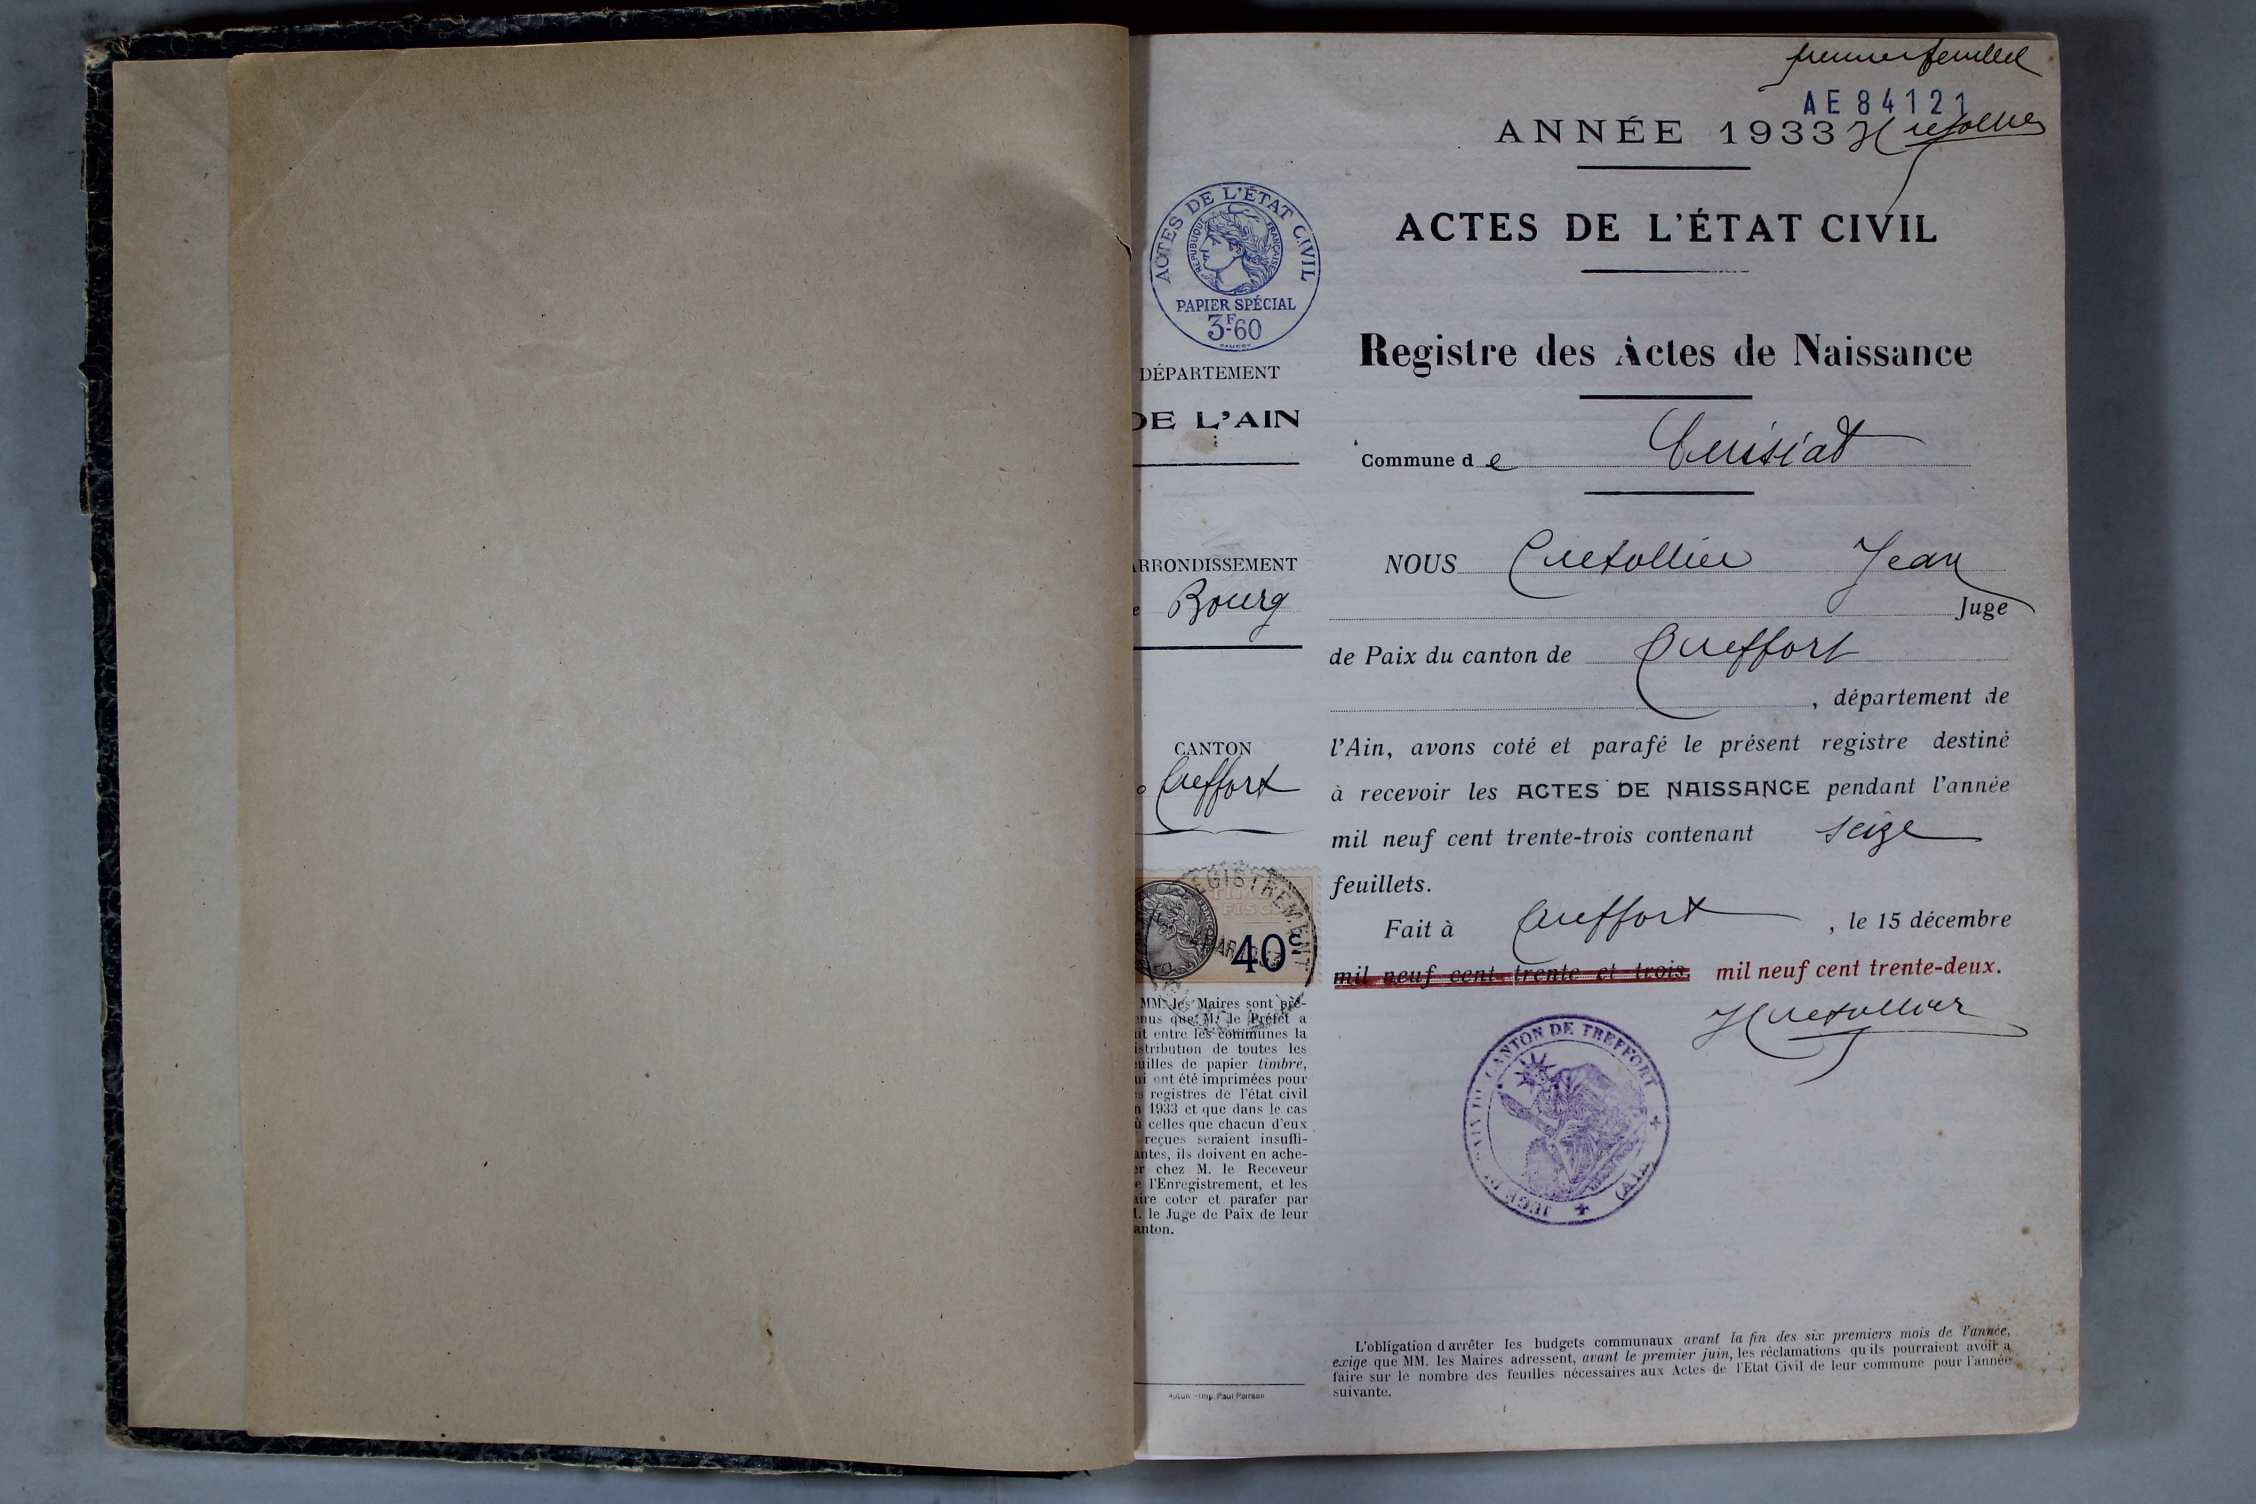 premier feuillet
AE84121
ANNÉE 1933
ACTES DE L'ÉTAT CIVIL
RÉPUBLIQUE FRANÇAISE
PAPIER SPÉCIAL
3F.60
DÉPARTEMENT
DE L'AIN
ARRONDISSEMENT
e Bourg
CANTON
Treffort
ENREGISTREMENT
40c
MM. les Maires sont pré-
enus que M. le Préfet a
it entre les communes la
istribution de toutes les
euilles de papier timbré,
ui ont été imprimées pour
s registres de l'état civil
n 1933 et que dans le cas
ù celles que chacun d'eux
reçues seraient insuffi-
antes, ils doivent en ache-
er chez M. le Receveur
e l'Enregistrement, et les
aire coter et parafer par
. le Juge de Paix de leur
anton.
Autun - Imp. Paul
ACTES DE L'ÉTAT CIVIL
Registre des Actes de Naissance
Commune de Cuisiat
NOUS Cretollier Jean
Juge
de Paix du canton de Treffort
, département de
l'Ain, avons coté et parafé le présent registre destiné
à recevoir les ACTES DE NAISSANCE pendant l'année
mil neuf cent trente-trois contenant seize
feuillets.
Fait à Treffort, le 15 décembre
mil neuf cent trente et trois. mil neuf cent trente-deux.
JUGE DE PAIX DU CANTON DE TREFFORT (AIN)
L'obligation d'arrêter les budgets communaux avant la fin des six premiers mois de l'année,
exige que MM. les Maires adressent, avant le premier juin, les réclamations qu'ils pourraient avoir à
faire sur le nombre des feuilles nécessaires aux Actes de l'Etat Civil de leur commune pour l'année
suivante.